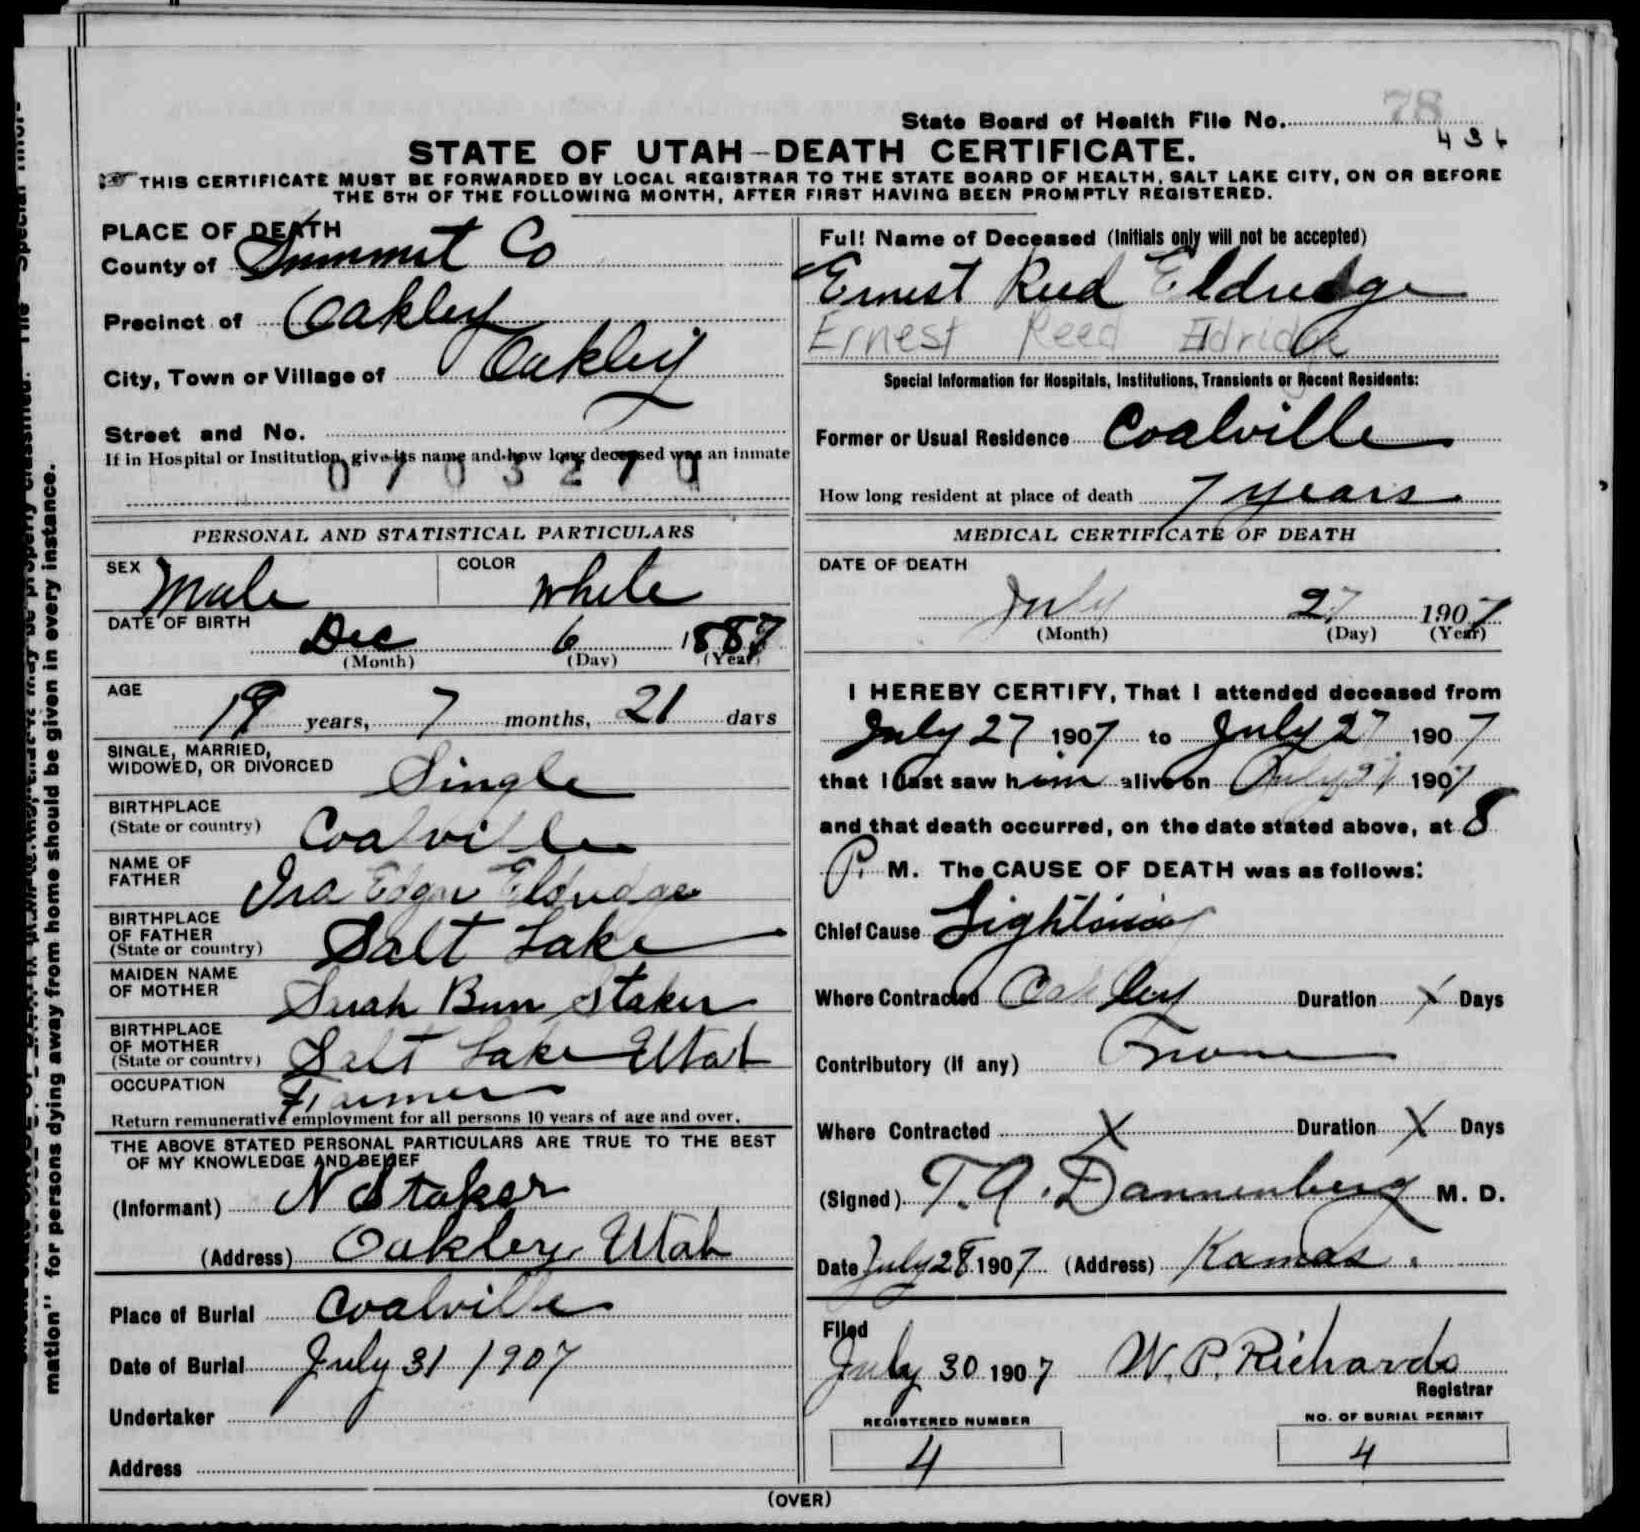 78
State Board of Health File No.
436
STATE OF UTAH—DEATH CERTIFICATE.
THIS CERTIFICATE MUST BE FORWARDED BY LOCAL REGISTRAR TO THE STATE BOARD OF HEALTH, SALT LAKE CITY, ON OR BEFORE
THE 5TH OF THE FOLLOWING MONTH, AFTER FIRST HAVING BEEN PROMPTLY REGISTERED.
PLACE OF DEATH
County of Summit Co
Precinct of Oakley
City, Town or Village of Oakley
Street and No.
If in Hospital or Institution, give its name and how long deceased was an inmate
PERSONAL AND STATISTICAL PARTICULARS
SEX Male COLOR White
DATE OF BIRTH
Dec 6 1887
(Month) (Day) (Year)
AGE
19 years, 7 months, 21 days
SINGLE, MARRIED,
WIDOWED, OR DIVORCED Single
BIRTHPLACE
(State or country) Coalville
NAME OF
FATHER Ira Edgar Eldredge
BIRTHPLACE
OF FATHER
(State or country) Salt Lake
MAIDEN NAME
OF MOTHER Sarah Staker
BIRTHPLACE
OF MOTHER
(State or country) Salt Lake Utah
OCCUPATION Farmer
Return remunerative employment for all persons 10 years of age and over.
THE ABOVE STATED PERSONAL PARTICULARS ARE TRUE TO THE BEST
OF MY KNOWLEDGE AND BELIEF
(Informant) N Staker
(Address) Oakley Utah
Place of Burial Coalville
Date of Burial July 31 1907
Undertaker
Address
Full Name of Deceased (Initials only will not be accepted)
Ernest Reed Eldredge
Ernest Reed Eldridge
Special Information for Hospitals, Institutions, Transients or Recent Residents:
Former or Usual Residence Coalville
How long resident at place of death 7 years
MEDICAL CERTIFICATE OF DEATH
DATE OF DEATH
July 27 1907
(Month) (Day) (Year)
I HEREBY CERTIFY, That I attended deceased from
July 27 1907 to July 27 1907
that I last saw him alive on July 27 1907
and that death occurred, on the date stated above, at 8
P. M. The CAUSE OF DEATH was as follows:
Chief Cause Lightning
Where Contracted Oakley Duration X Days
Contributory (if any) None
Where Contracted X Duration X Days
(Signed) T. A. Dannenberg M. D.
Date July 28 1907 (Address) Kamas.
Filed
July 30 1907 W. P. Richards
Registrar
REGISTERED NUMBER
4
NO. OF BURIAL PERMIT
4
(OVER)
mation" for persons dying away from home should be given in every instance.